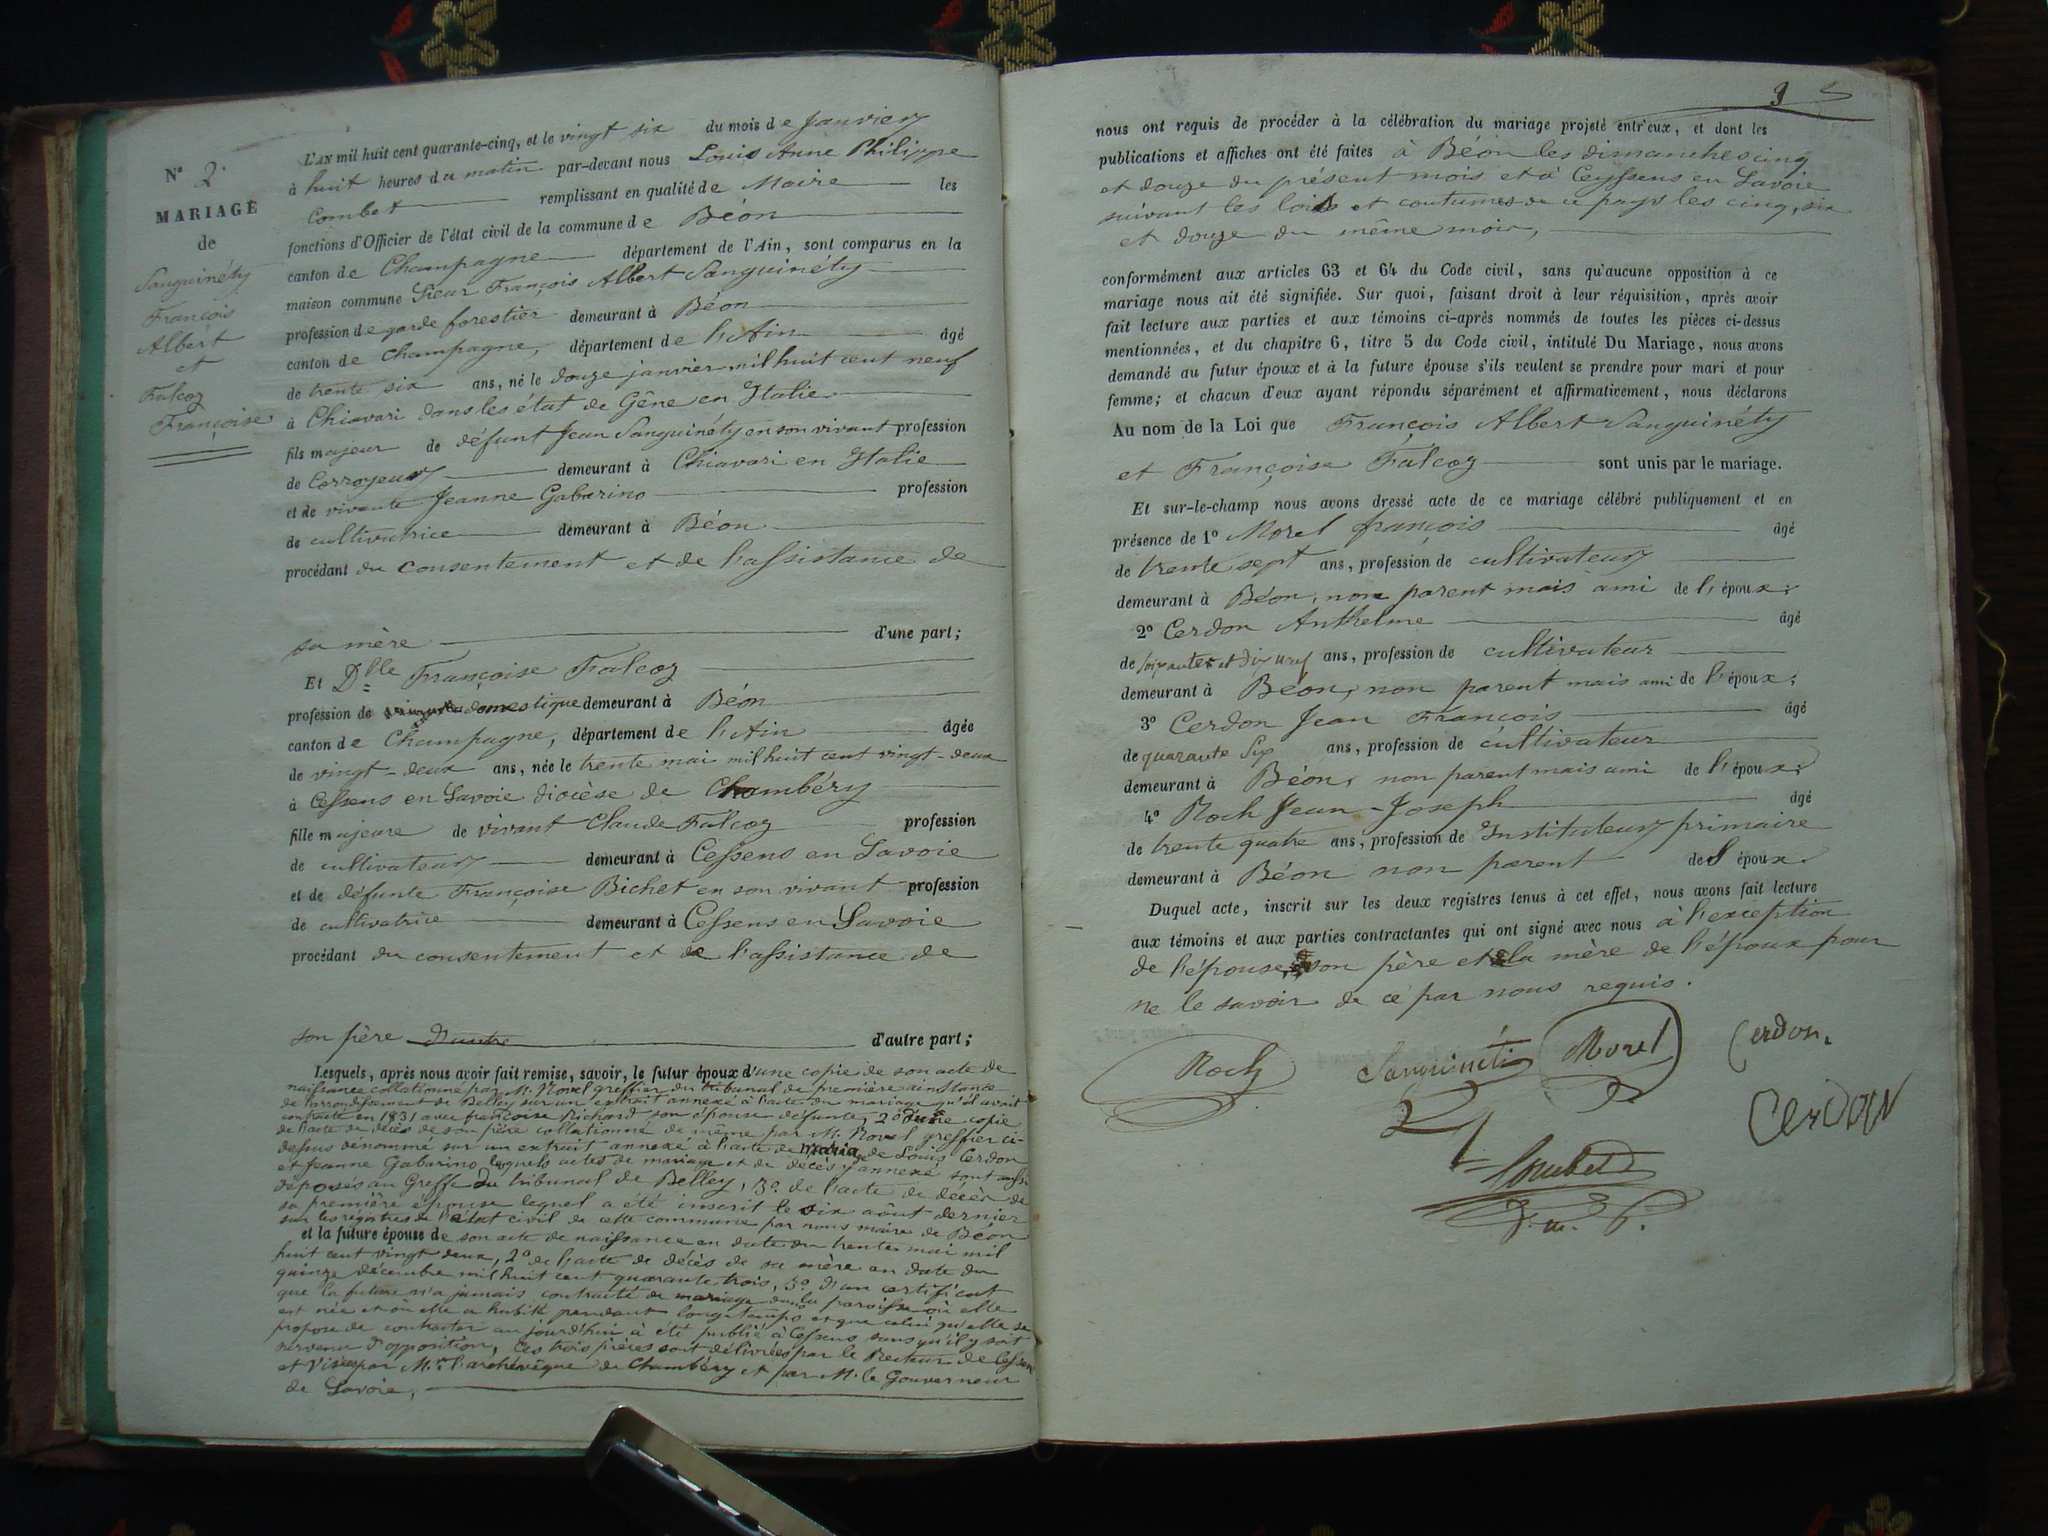 N° 2.
MARIAGE
de
Sanguinéty
François
Albért
et
Falcoz
Françoise
L'AN mil huit cent quarante-cinq, et le vingt six du mois de Janvier
à huit heures du matin par-devant nous Louis Anne Philippe
Combet remplissant en qualité de Maire les
fonctions d'Officier de l'état civil de la commune de Béon
canton de Champagne département de l'Ain, sont comparus en la
maison commune Sieur François Albert Sanguinéty
profession de garde forestier demeurant à Béon
canton de Champagne, département de l'Ain âgé
de trente six ans, né le douze janvier mil huit cent neuf
à Chiavari dans les état de Gêne en Italie
fils majeur de défunt Jean Sanguinéty en son vivant profession
de Corroyeur demeurant à Chiavari en Italie
et de vivante Jeanne Gabarino profession
de cultivatrice demeurant à Béon
procédant du consentement et de l'assistance de
sa mère d'une part;
Et Dlle Françoise Falcoz
profession de domestique demeurant à Béon
canton de Champagne, département de l'Ain âgée
de vingt-deux ans, née le trente mai mil huit cent vingt-deux
à Cessens en Savoie diocèse de Chambéry
fille majeure de vivant Claude Falcoz profession
de cultivateur demeurant à Cessens en Savoie
et de défunte Françoise Bichet en son vivant profession
de cultivatrice demeurant à Cessens en Savoie
procédant du consentement et de l'assistance de
son père d'autre d'autre part;
Lesquels, après nous avoir fait remise, savoir, le futur époux d'une copie de son acte de
naissance collationné par M. Morel greffier du tribunal de première instance
de l'arrondissement de Belley sur un extrait annexé à l'acte du mariage qu'il avait
contracté en 1831 avec françoise Richard son épouse défunte, 2° d'une copie
de l'acte de décès de son père collationné de même par M. Morel greffier ci-
dessus dénommé sur un extrait annexé à l'acte de mariage de Louis Cerdon
et Jeanne Gabarino, lesquels actes de mariage et de décès y annexé sont aussi
déposés au Greffe du tribunal de Belley, 3° de l'acte de décès de
sa première épouse lequel a été inscrit le six août dernier
sur les régistres de l'état civil de cette commune par nous maire de Béon
et la future épouse de son acte de naissance en date du trente mai mil
huit cent vingt deux, 2° de l'acte de décès de sa mère en date du
quinze décembre mil huit cent quarante trois, 3° d'un certificat
que la future n'a jamais contracté de mariage dans la paroisse où elle
est née et où elle a habité pendant longtemps et que celui qu'elle se
propose de contracter au jourd'hui à été publié à Cessens sans qu'il y soit
survenu d'opposition, Ces trois pièces sont délivrées par le Recteur de Cessens
et visées par Mgr l'archevêque de Chambéry et par M. le Gouverneur
de Savoie,
nous ont requis de procéder à la célébration du mariage projeté entr'eux, et dont les
publications et affiches ont été faites à Béon les dimanches cinq
et douze du présent mois et à Ceyssens en Savoie
suivant les lois et coutumes de ce pays les cinq, six
et douze du même mois,
conformément aux articles 63 et 64 du Code civil, sans qu'aucune opposition à ce
mariage nous ait été signifiée. Sur quoi, faisant droit à leur réquisition, après avoir
fait lecture aux parties et aux témoins ci-après nommés de toutes les pièces ci-dessus
mentionnées, et du chapitre 6, titre 5 du Code civil, intitulé Du Mariage, nous avons
demandé au futur époux et à la future épouse s'ils veulent se prendre pour mari et pour
femme; et chacun d'eux ayant répondu séparément et affirmativement, nous déclarons
Au nom de la Loi que François Albert Sanguinéty
et Françoise Falcoz sont unis par le mariage.
Et sur-le-champ nous avons dressé acte de ce mariage célébré publiquement et en
présence de 1° Morel françois âgé
de trente sept ans, profession de cultivateur
demeurant à Béon, non parent mais ami de l'époux;
2° Cerdon Anthelme âgé
de soixante et dix neuf ans, profession de cultivateur
demeurant à Béon, non parent mais ami de l'époux;
3° Cerdon Jean François âgé
de quarante six ans, profession de cultivateur
demeurant à Béon, non parent mais ami de l'époux;
4° Roch Jean-Joseph âgé
de trente quatre ans, profession de Instituteur primaire
demeurant à Béon non parent de l'époux.
Duquel acte, inscrit sur les deux registres tenus à cet effet, nous avons fait lecture
aux témoins et aux parties contractantes qui ont signé avec nous à l'exception
de l'épouse, son père et la mère de l'époux pour
ne le savoir de ce par nous requis.
Roch Sanguinéti Morel Cerdon.
Cerdon
Combet